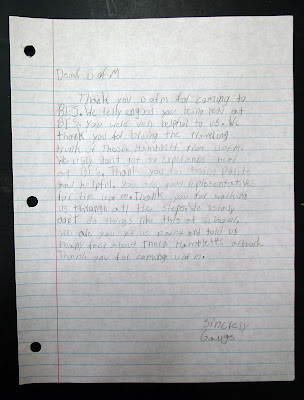 Dear U of M
Thank you u of m for coming to
BES. We relly enjoyed you being here at
BES. You were very helpful to us. We
thank you for bringing the traveling
trunk of Theora Hamblett from u of m.
We really don't get to experience here
at BES. Thank you for being polite
and helpful. You are good representatives
for the u of m. Thank you for walking
us through all the steps. We usually
don't do things like this at school.
We like you let us paint and told us
many facs about Theora Hambletts artwork.
Thank you for coming u of m.
Sincresly
Gauge